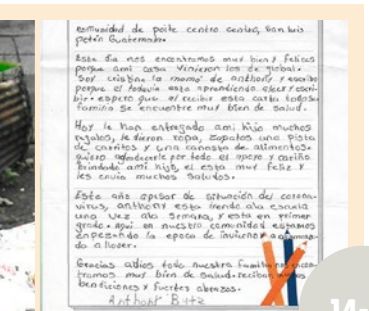 comunidad de poite centro centro, san luis
petén Guatemala.
Este dia nos encontramos muy bien y felices
porque ami casa vinieron los de global.
Soy cristina la mama de anthony y escribo
porque el todavia esta aprendiendo a leer y escri-
bir. espero que al recibir esta carta toda su
familia se encuentre muy bien de salud.
Hoy le han entregado ami hijo muchos
regalos, le dieron ropa, zapatos una pista
de carritos y una canasta de alimentos.
quiero agradecerle por todo el apoyo y cariño
brindado ami hijo, el esta muy feliz y
les envia muchos saludos.
Este año apesar de situación del corona-
virus, anthony esta yendo ala escuela
una vez ala semana, y esta en primer
grado. aqui en nuestro comunidad estamos
enpezando la epoca de invierno
do a llover.
Gracias a dios toda nuestra familia nos encon-
tramos muy bien de salud. reciban
bendiciones y fuertes abrazos.
Anthony Butz
14-